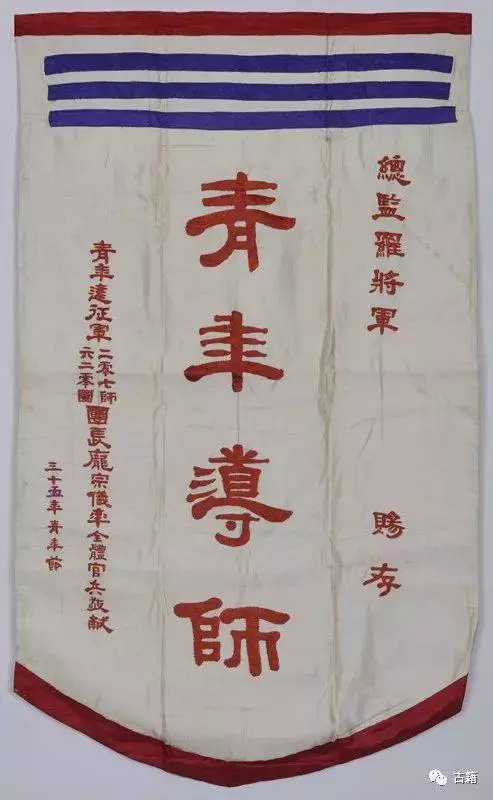 總監羅將軍 賜存
青年導師
青年遠征軍二零七師六二零團團長龐宗儀率全體官兵敬献
三十五年青年節
古籍